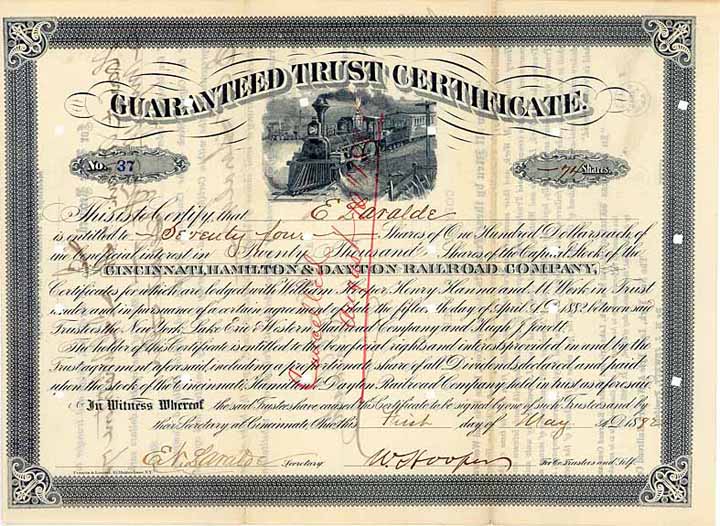 GUARANTEED TRUST CERTIFICATE.
No. 37
74 Shares.
This is to Certify, that E Laralde
is entitled to Seventy four Shares of One Hundred Dollars each of
the beneficial interest in Twenty Thousand Shares of the Capital Stock of the
CINCINNATI, HAMILTON & DAYTON RAILROAD COMPANY,
Certificates for which are lodged with William Hooper, Henry Hanna and M. Werk in Trust
under and in pursuance of a certain agreement of date the fifteenth day of April A.D. 1882 between said
Trustees the New York, Lake Erie Western Railroad Company and Hugh J. Jewett.
The holder of this Certificate is entitled to the beneficial rights and interests provided in and by the
Trust agreement aforesaid, including a proportional share of all Dividends declared and paid
upon the stock of the Cincinnati Hamilton Dayton Railroad Company held in trust as aforesaid
In Witness Whereof the said Trustees have caused this Certificate to be signed by one of such Trustees and by
their Secretary at Cincinnati Ohio this First day of May A.D. 1882
E. Laralde Secretary W. Hooper For Co. Trustees and Self.
Cancelled